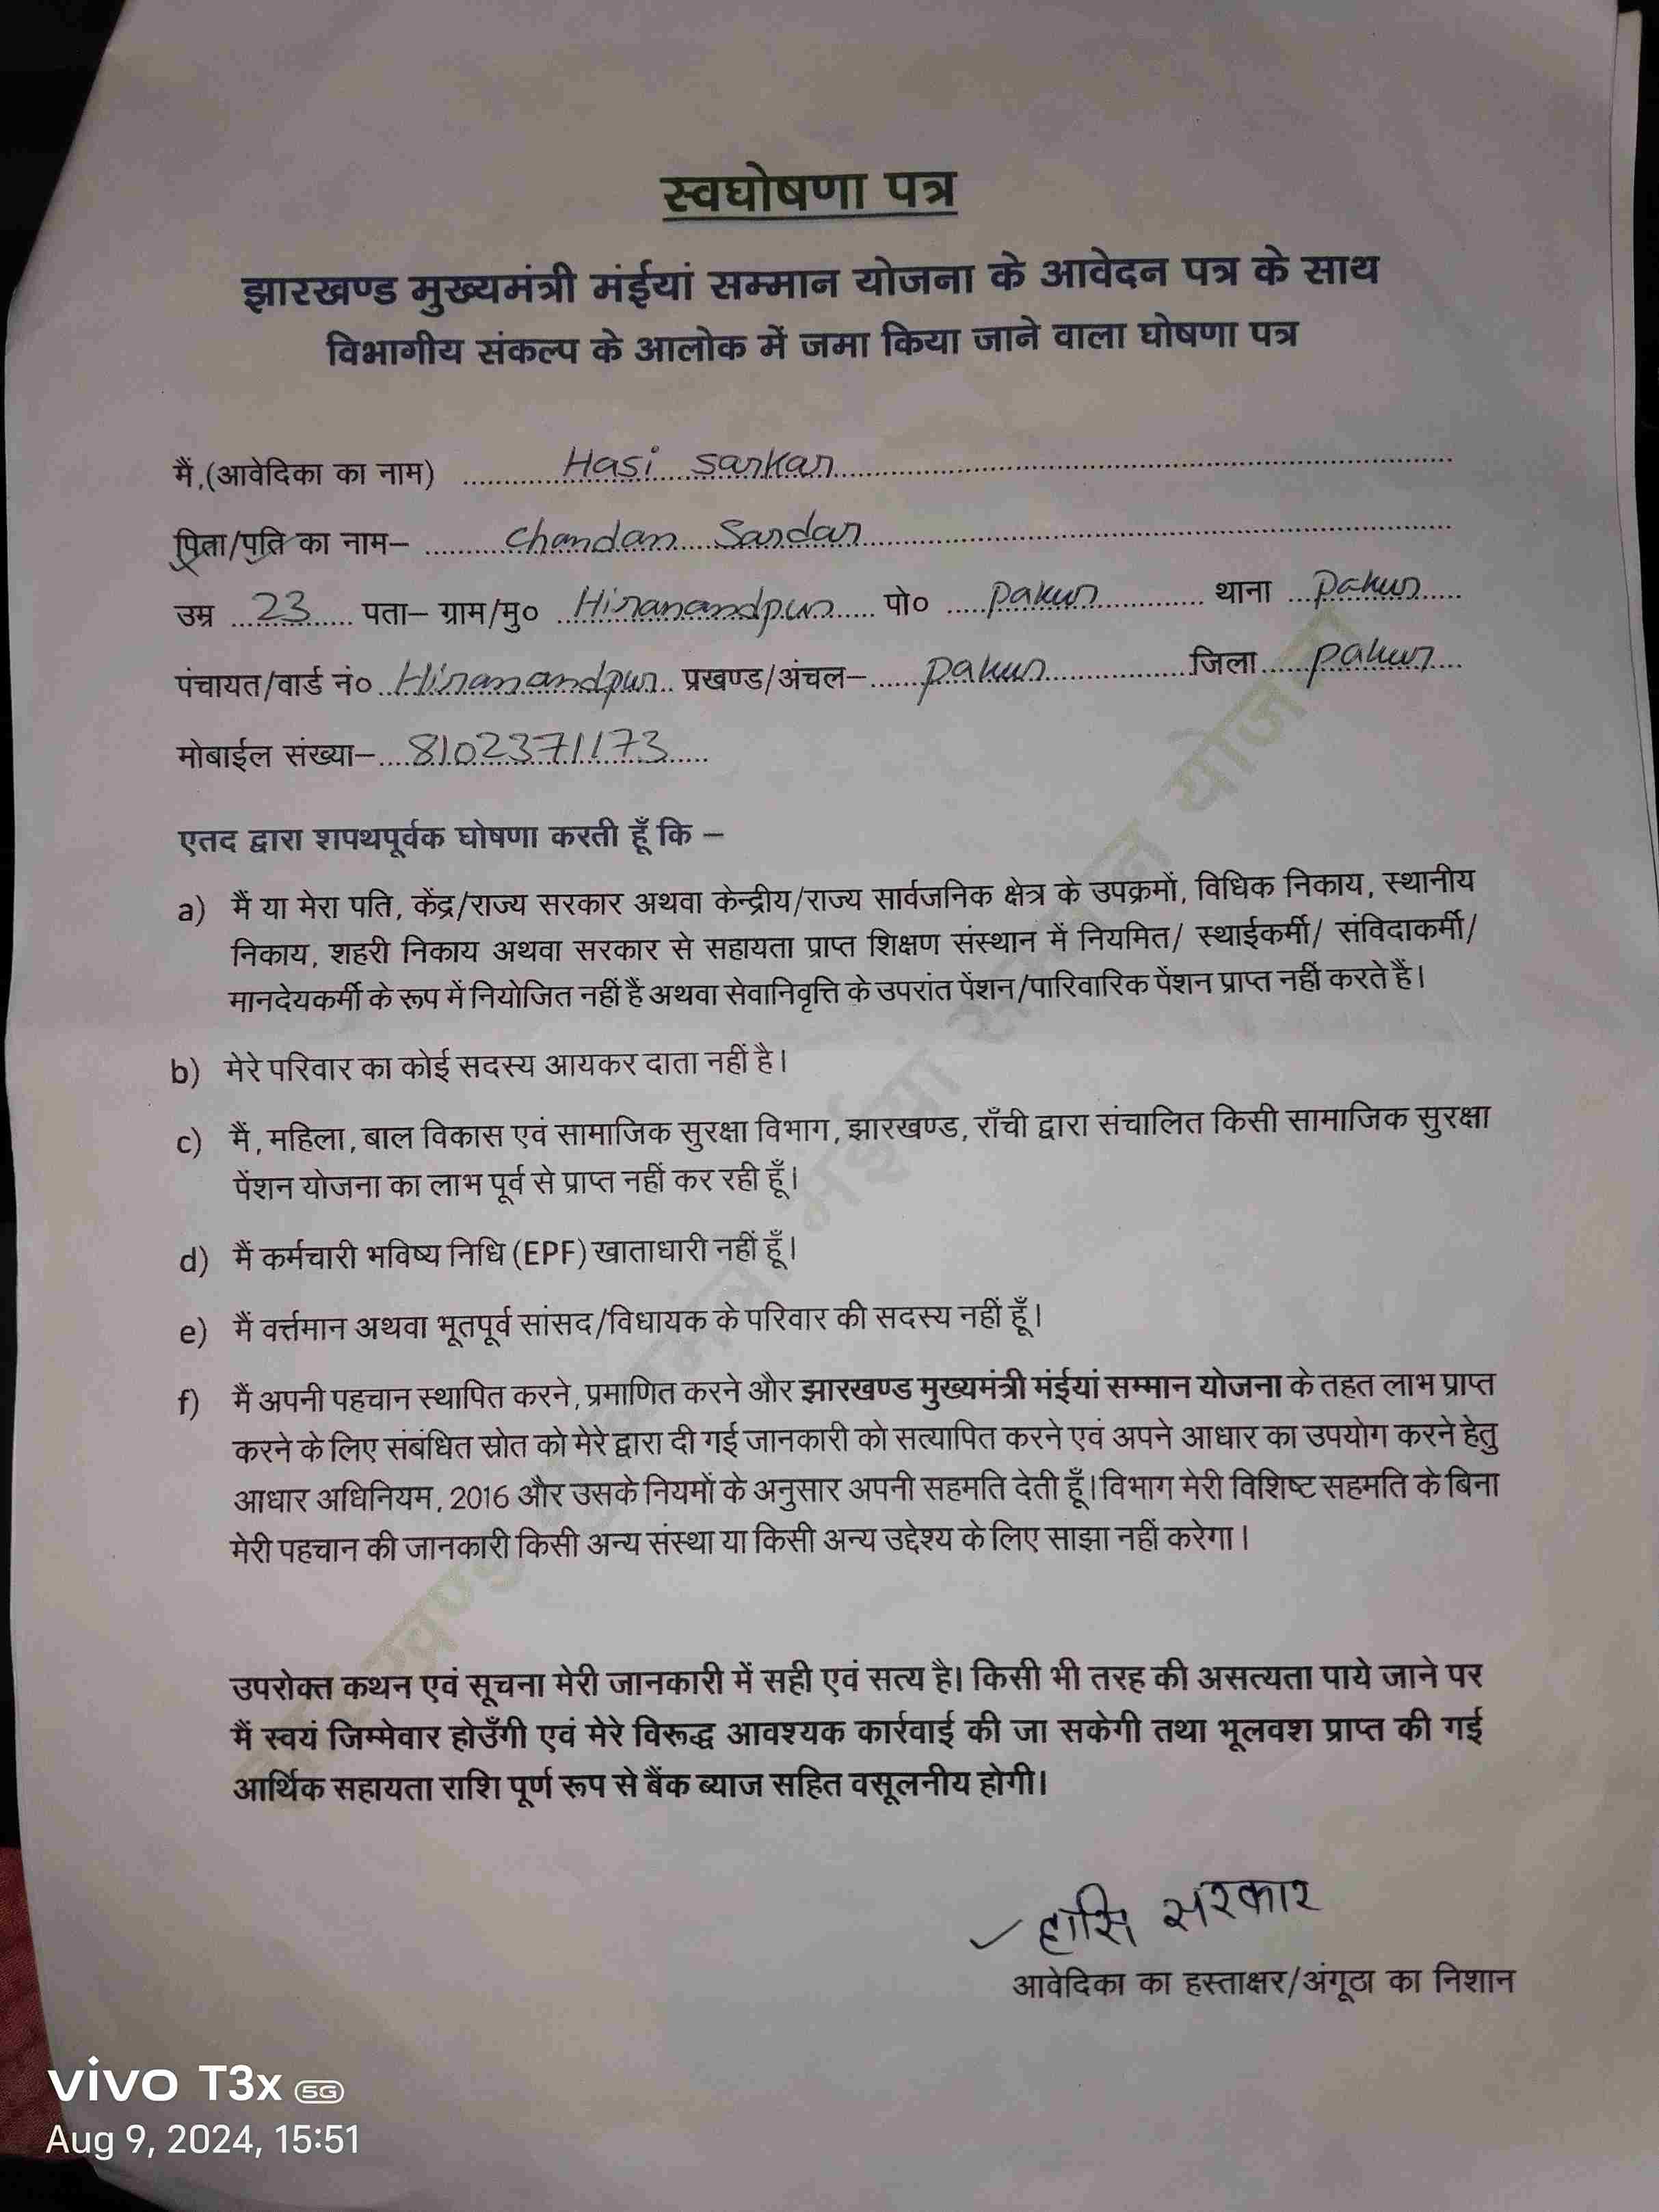 स्वघोषणा पत्र
झारखण्ड मुख्यमंत्री मंईयां सम्मान योजना के आवेदन पत्र के साथ
विभागीय संकल्प के आलोक में जमा किया जाने वाला घोषणा पत्र
मैं,(आवेदिका का नाम) Hasi Sarkar
पिता/पति का नाम– Chandan Sardar
उम्र 23 पता– ग्राम/मु० Hiranandpur पो० Pakur थाना Pakur
पंचायत/वार्ड नं० Hiranandpur प्रखण्ड/अंचल– Pakur जिला Pakur
मोबाईल संख्या– 8102371173
एतद द्वारा शपथपूर्वक घोषणा करती हूँ कि –
a) मैं या मेरा पति, केंद्र/राज्य सरकार अथवा केन्द्रीय/राज्य सार्वजनिक क्षेत्र के उपक्रमों, विधिक निकाय, स्थानीय
निकाय, शहरी निकाय अथवा सरकार से सहायता प्राप्त शिक्षण संस्थान में नियमित/ स्थाईकर्मी/ संविदाकर्मी/
मानदेयकर्मी के रूप में नियोजित नहीं हैं अथवा सेवानिवृत्ति के उपरांत पेंशन/पारिवारिक पेंशन प्राप्त नहीं करते हैं।
b) मेरे परिवार का कोई सदस्य आयकर दाता नहीं है।
c) मैं, महिला, बाल विकास एवं सामाजिक सुरक्षा विभाग, झारखण्ड, राँची द्वारा संचालित किसी सामाजिक सुरक्षा
पेंशन योजना का लाभ पूर्व से प्राप्त नहीं कर रही हूँ।
d) मैं कर्मचारी भविष्य निधि (EPF) खाताधारी नहीं हूँ।
e) मैं वर्त्तमान अथवा भूतपूर्व सांसद/विधायक के परिवार की सदस्य नहीं हूँ।
f) मैं अपनी पहचान स्थापित करने, प्रमाणित करने और झारखण्ड मुख्यमंत्री मंईयां सम्मान योजना के तहत लाभ प्राप्त
करने के लिए संबंधित स्रोत को मेरे द्वारा दी गई जानकारी को सत्यापित करने एवं अपने आधार का उपयोग करने हेतु
आधार अधिनियम, 2016 और उसके नियमों के अनुसार अपनी सहमति देती हूँ। विभाग मेरी विशिष्ट सहमति के बिना
मेरी पहचान की जानकारी किसी अन्य संस्था या किसी अन्य उद्देश्य के लिए साझा नहीं करेगा।
उपरोक्त कथन एवं सूचना मेरी जानकारी में सही एवं सत्य है। किसी भी तरह की असत्यता पाये जाने पर
मैं स्वयं जिम्मेवार होउँगी एवं मेरे विरूद्ध आवश्यक कार्रवाई की जा सकेगी तथा भूलवश प्राप्त की गई
आर्थिक सहायता राशि पूर्ण रूप से बैंक ब्याज सहित वसूलनीय होगी।
हासि सरकार
आवेदिका का हस्ताक्षर/अंगूठा का निशान
झारखण्ड मुख्यमंत्री मंईयां सम्मान योजना
vivo T3x 5G
Aug 9, 2024, 15:51